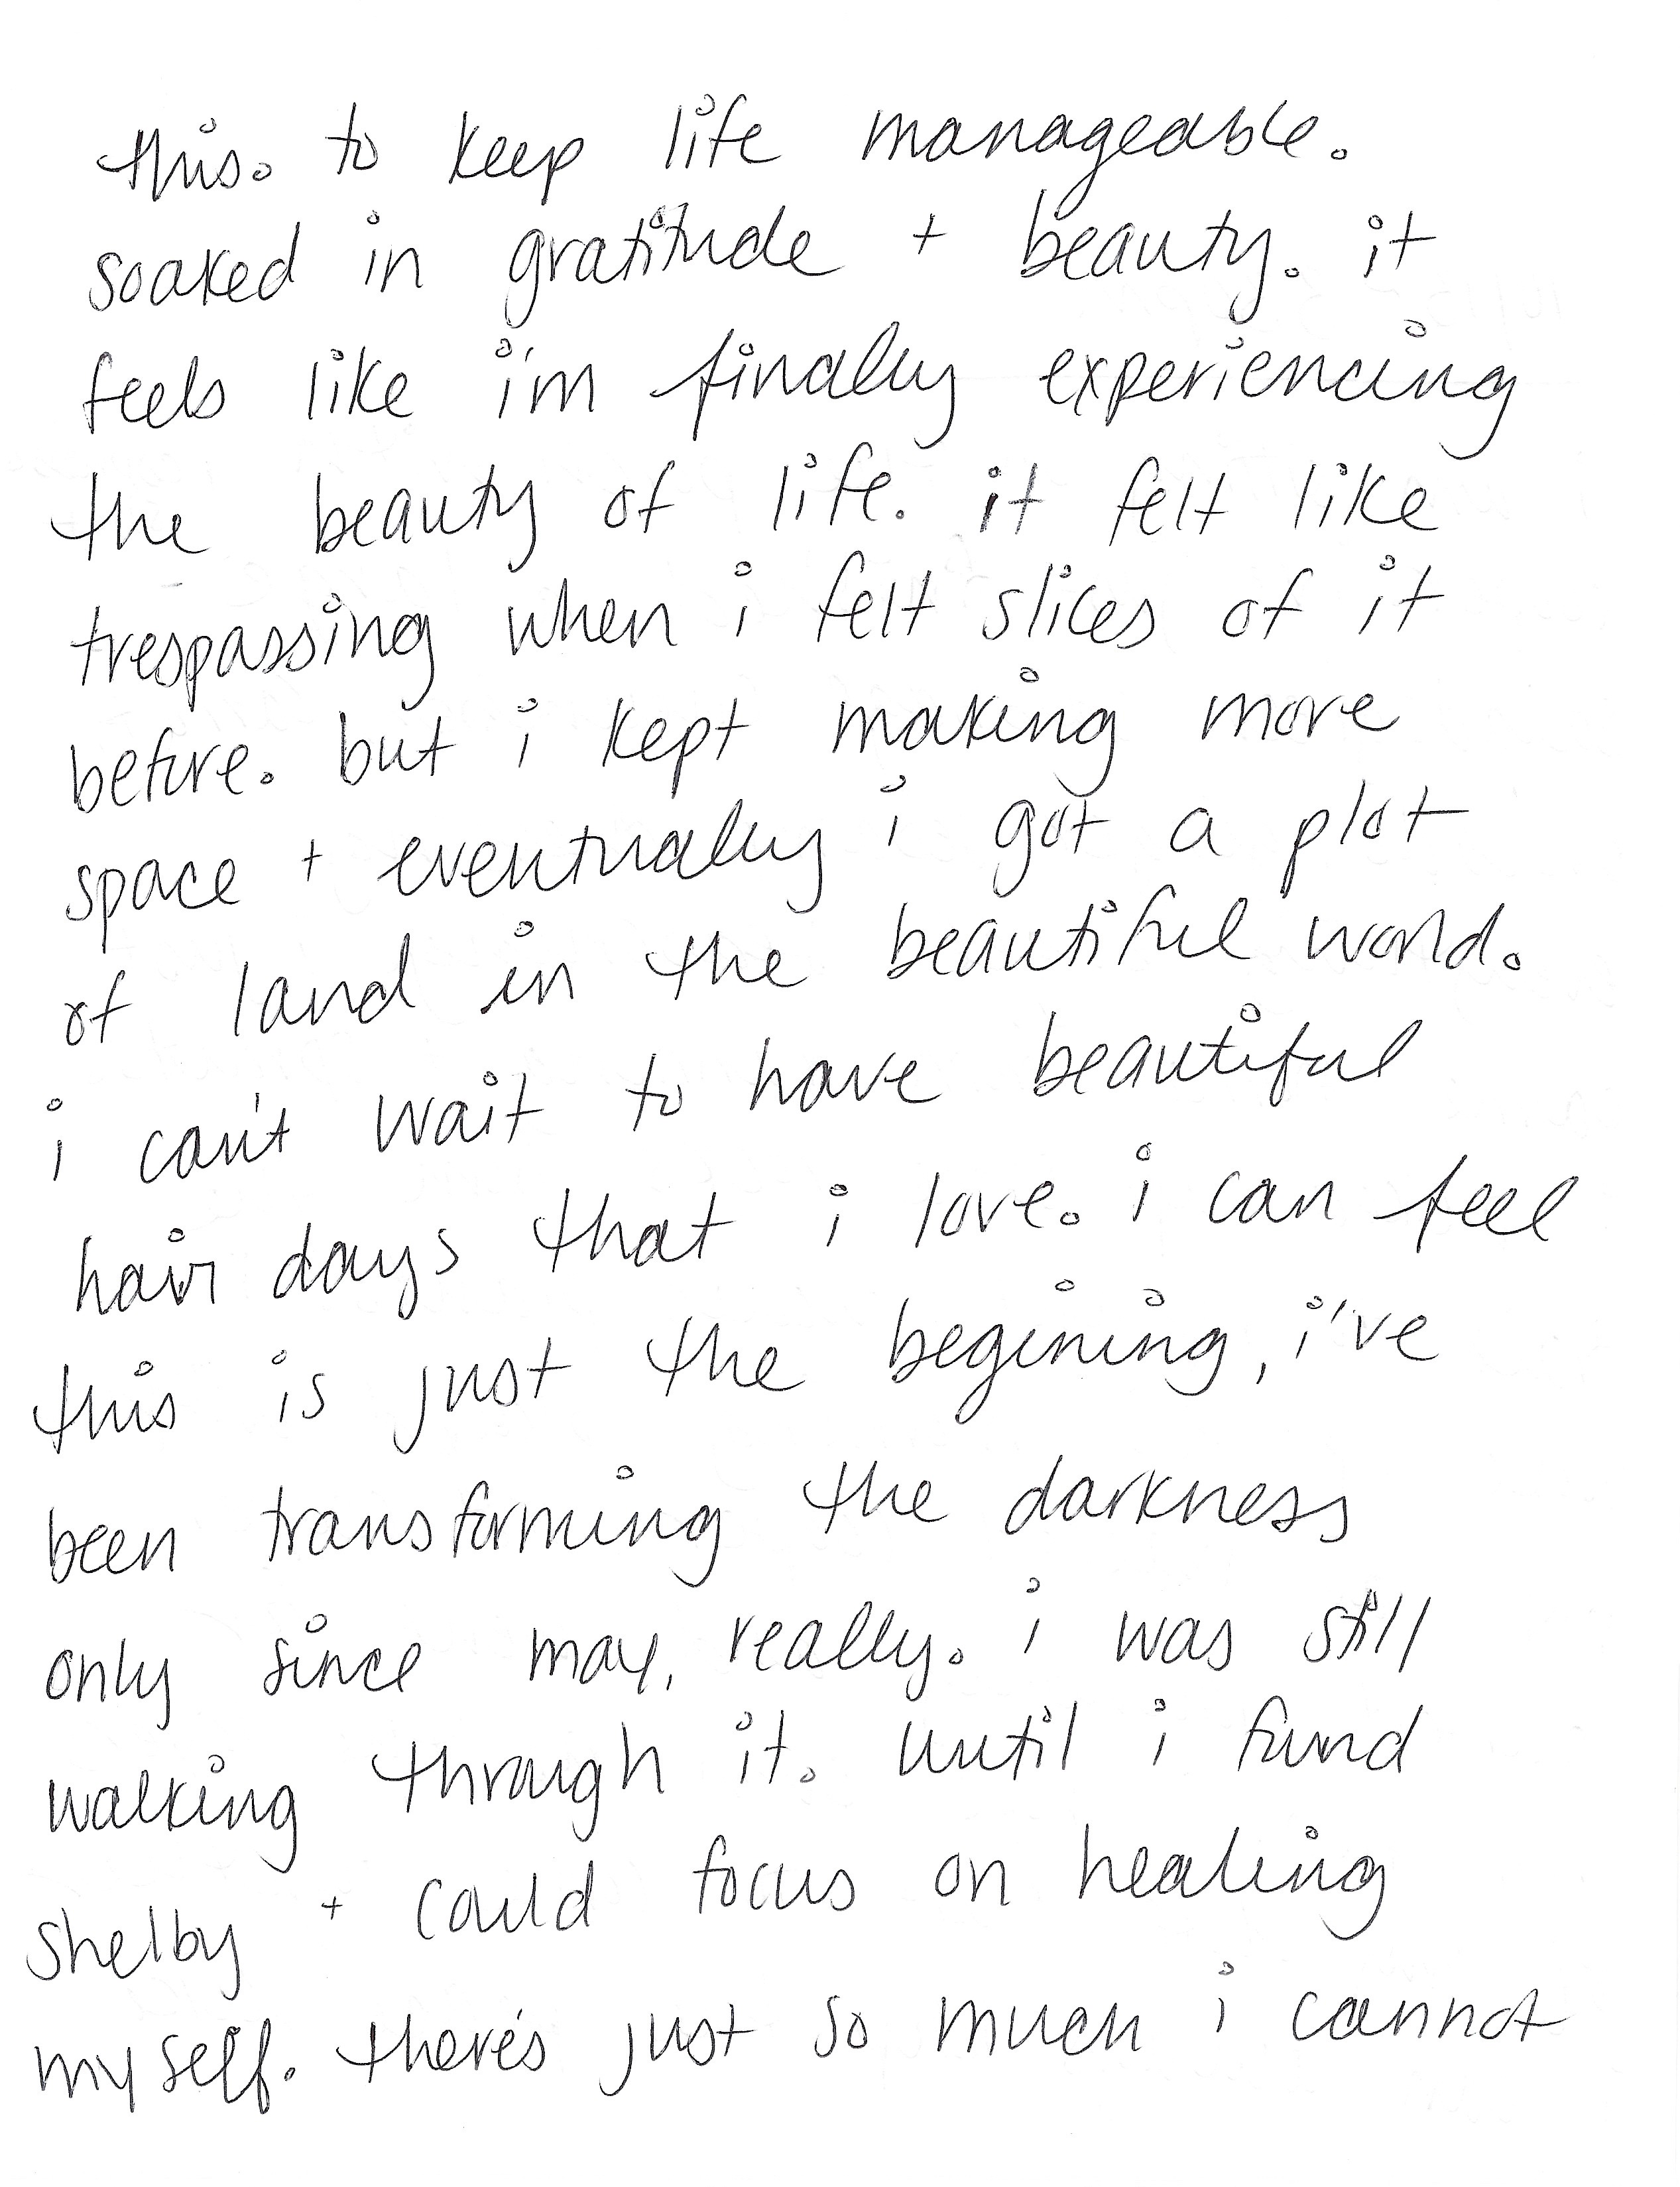 this. to keep life manageable.
soaked in gratitude + beauty. it
feels like i'm finally experiencing
the beauty of life. it felt like
trespassing when i felt slices of it
before. but i kept making more
space + eventually i got a plot
of land in the beautiful world.
i can't wait to have beautiful
hair days that i love. i can feel
this is just the begining, i've
been transforming the darkness
only since may, really. i was still
walking through it. until i found
shelby + could focus on healing
myself. there's just so much i cannot